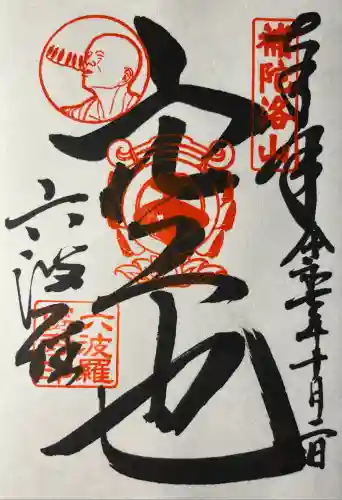 奉拝 令和七年十月二日
補陀洛山
空也
六波羅
六波羅